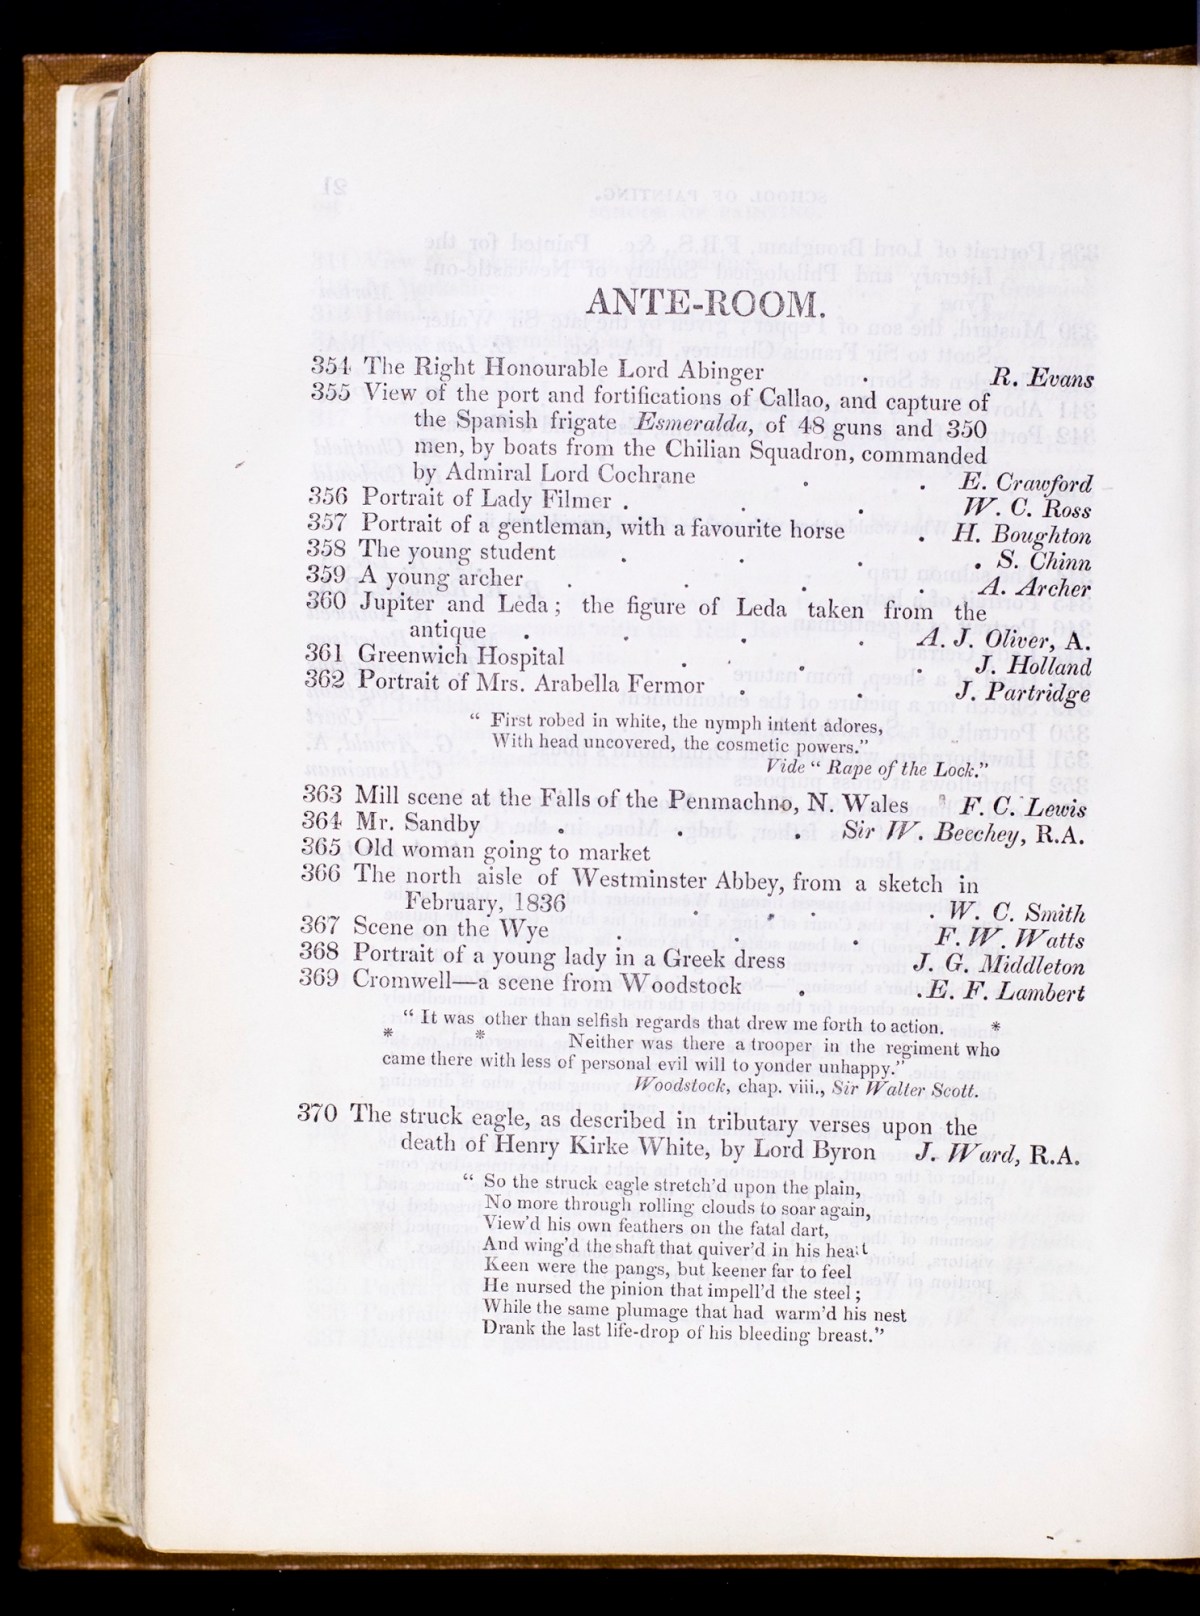 ANTE-ROOM.
354 The Right Honourable Lord Abinger . R. Evans
355 View of the port and fortifications of Callao, and capture of
the Spanish frigate Esmeralda, of 48 guns and 350
men, by boats from the Chilian Squadron, commanded
by Admiral Lord Cochrane . . E. Crawford
356 Portrait of Lady Filmer . . . W. C. Ross
357 Portrait of a gentleman, with a favourite horse . H. Boughton
358 The young student . . . . S. Chinn
359 A young archer . . . . A. Archer
360 Jupiter and Leda; the figure of Leda taken from the
antique . . . . A. J. Oliver, A.
361 Greenwich Hospital . . . J. Holland
362 Portrait of Mrs. Arabella Fermor . . J. Partridge
“ First robed in white, the nymph intent adores,
With head uncovered, the cosmetic powers.”
Vide “ Rape of the Lock.”
363 Mill scene at the Falls of the Penmachno, N. Wales F. C. Lewis
364 Mr. Sandby . . . Sir W. Beechey, R.A.
365 Old woman going to market
366 The north aisle of Westminster Abbey, from a sketch in
February, 1836 . . . . W. C. Smith
367 Scene on the Wye . . . F. W. Watts
368 Portrait of a young lady in a Greek dress J. G. Middleton
369 Cromwell—a scene from Woodstock . . E. F. Lambert
“ It was other than selfish regards that drew me forth to action. *
* * Neither was there a trooper in the regiment who
came there with less of personal evil will to yonder unhappy.”
Woodstock, chap. viii., Sir Walter Scott.
370 The struck eagle, as described in tributary verses upon the
death of Henry Kirke White, by Lord Byron J. Ward, R.A.
“ So the struck eagle stretch’d upon the plain,
No more through rolling clouds to soar again,
View’d his own feathers on the fatal dart,
And wing’d the shaft that quiver’d in his heart
Keen were the pangs, but keener far to feel
He nursed the pinion that impell’d the steel;
While the same plumage that had warm’d his nest
Drank the last life-drop of his bleeding breast.”